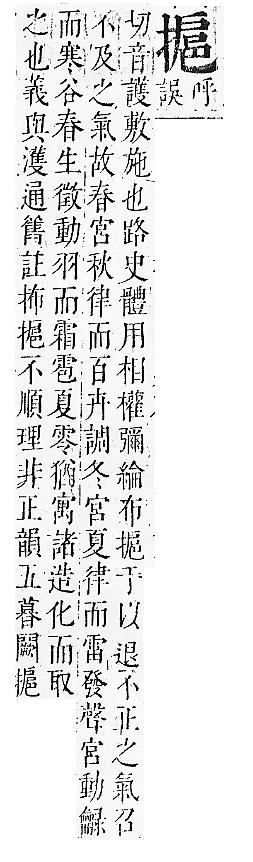 摳
呼
誤
切音護敷施也路史體用相權彌綸布摳于以退不正之氣召
不及之氣故春宮秋律而百卉調冬宮夏律而雷發聲宮動
而寒谷春生徵動羽而霜雹夏零猶寓諸造化而取
之也義與濩通舊註抪摳不順理非正韻五暮闕摳